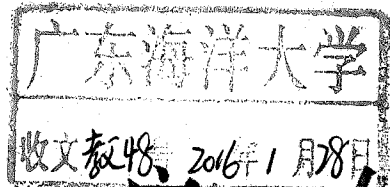 广东海洋大学
收文教48号 2016年1月28日